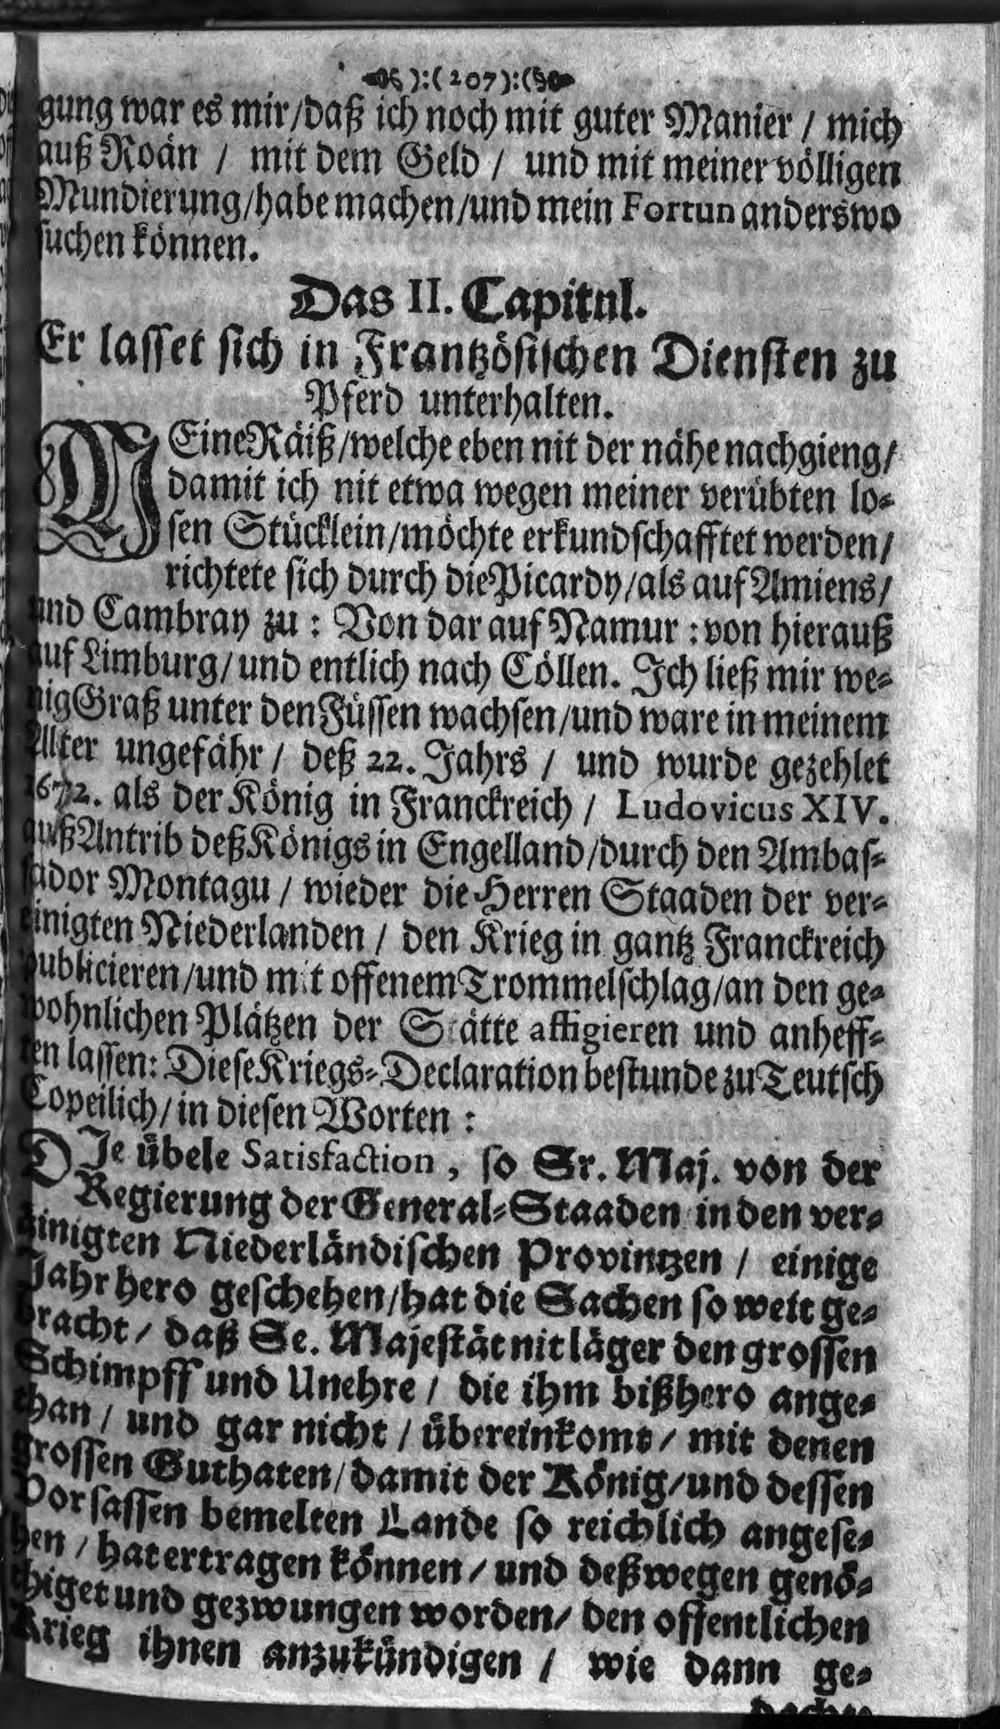 ):(207):(
gung war es mir/daß ich noch mit guter Manier / mich
auß Roän / mit dem Geld / und mit meiner völligen
Mundierung/habe machen/und mein Fortun anderswo
suchen können.
Das II. Capitul.
Er lasset sich in Frantzösischen Diensten zu
Pferd unterhalten.
MEine Räiß/welche eben nit der nähe nachgieng/
damit ich nit etwa wegen meiner verübten lo-
sen Stücklein/möchte erkundschafftet werden/
richtete sich durch die Picardy/als auf Amiens/
und Cambray zu : Von dar auf Namur : von hierauß
auf Limburg/und entlich nach Cöllen. Ich ließ mir we-
nig Graß unter den Füssen wachsen/und ware in meinem
Alter ungefähr / deß 22. Jahrs / und wurde gezehlet
1672. als der König in Franckreich / Ludovicus XIV.
auß Antrib deß Königs in Engelland/durch den Ambas-
sador Montagu / wieder die Herren Staaden der ver-
einigten Niederlanden / den Krieg in gantz Franckreich
publicieren/und mit offenem Trommelschlag/an den ge-
wohnlichen Plätzen der Stätte affigieren und anheff-
ten lassen: Diese Kriegs-Declaration bestunde zu Teutsch
Copeilich/in diesen Worten :
DIe übele Satisfaction, so Sr. Maj. von der
Regierung der General-Staaden in den ver-
einigten Niederländischen Provintzen / einige
Jahr hero geschehen/hat die Sachen so weit ge-
bracht / daß Se. Majestät nit läger den grossen
Schimpff und Unehre / die ihm bißhero ange-
than / und gar nicht / übereinkomt / mit denen
grossen Guthaten/damit der König/und dessen
Vorsassen bemelten Lande so reichlich angese-
hen / hat ertragen können / und deßwegen genö-
thiget und gezwungen worden/ den offentlichen
Krieg ihnen anzukündigen / wie dann ge-